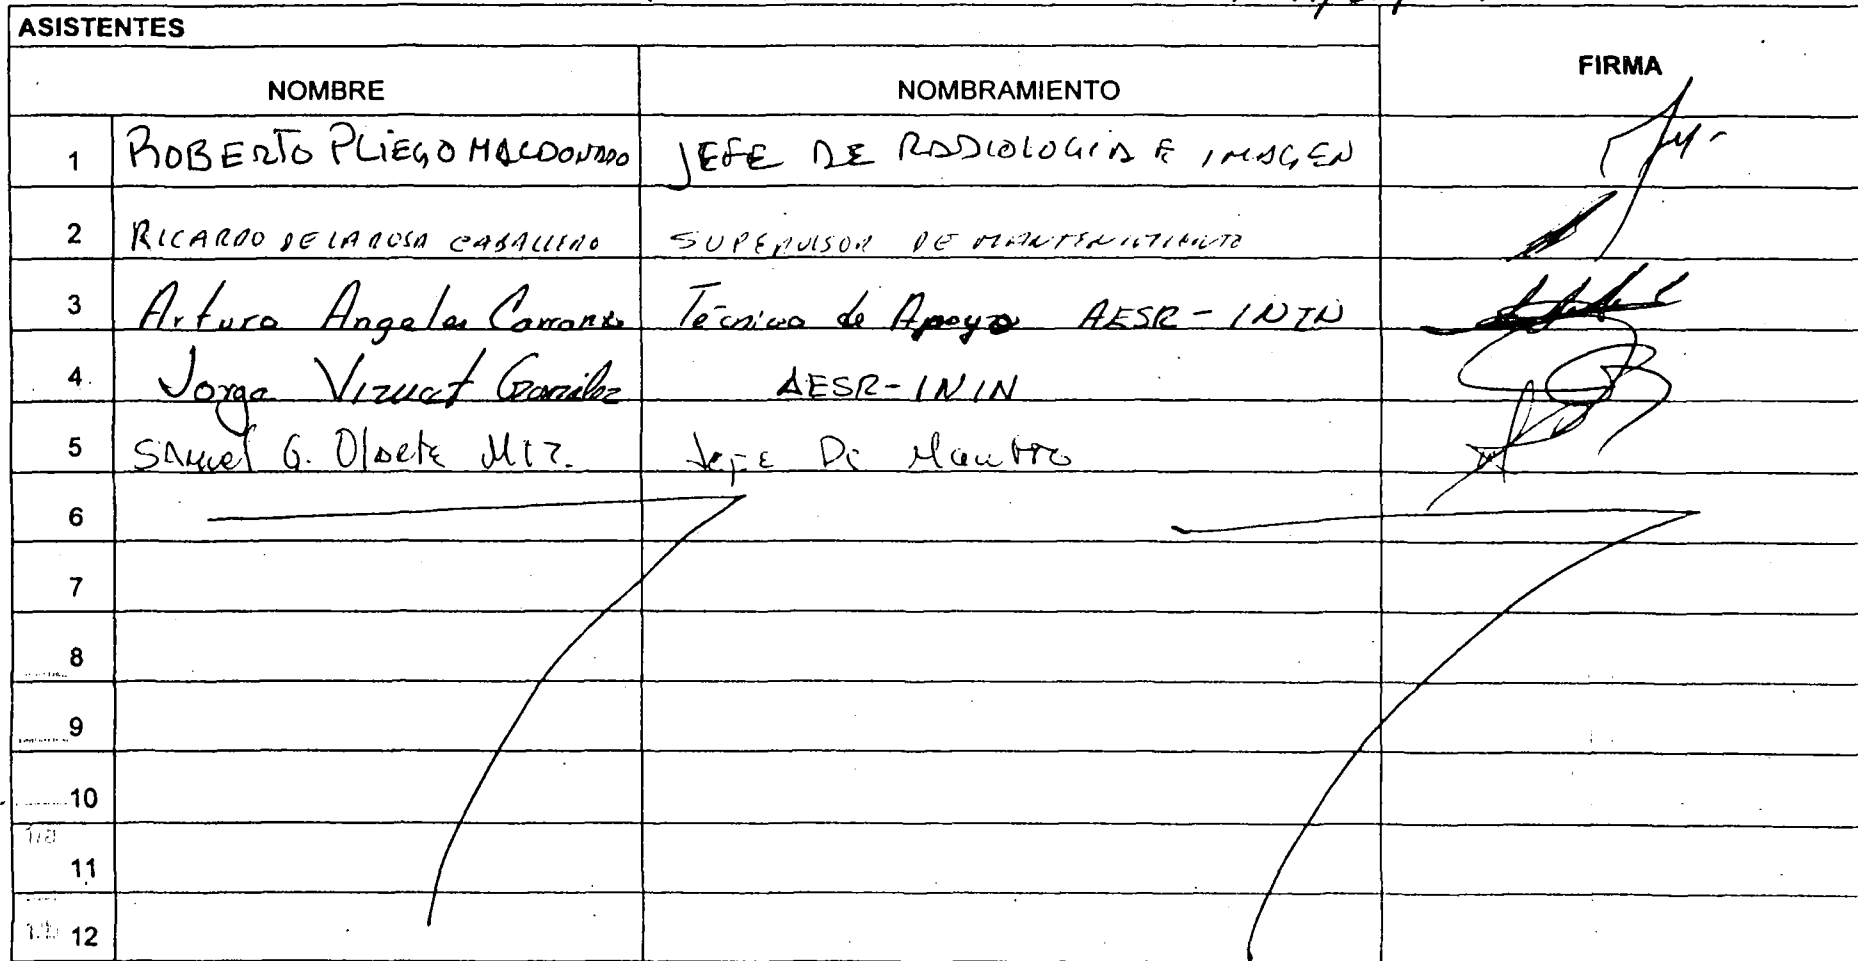 ASISTENTES
NOMBRE NOMBRAMIENTO FIRMA
1 ROBERTO PLIEGO MALDONADO JEFE DE RADIOLOGIA E IMAGEN
2 RICARDO DE LA ROSA CABALLERO SUPERVISOR DE MANTENIMIENTO
3 Arturo Angeles Carranza Técnico de Apoyo AESR-ININ
4 Jorge Vizuet González AESR-ININ
5 SAMUEL G. Olaete Mtz. Jefe De Mantto
6
7
8
9
10
11
12